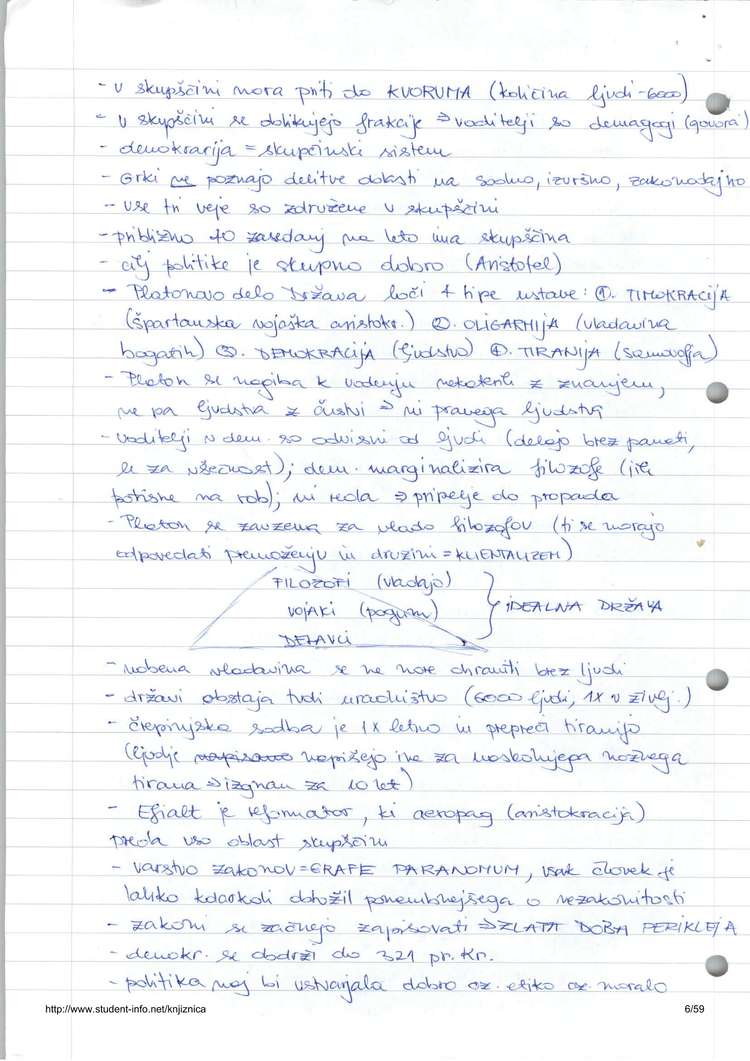 - v skupščini mora priti do KVORUMA (količina ljudi - 6000)
- v skupščini se oblikujejo frakcije ⇒ voditelji so demagogi (govora)
- demokracija = skupčinski sistem
- Grki ne poznajo delitve oblasti na sodno, izvršno, zakonodajno
- vse tri veje so združene v skupščini
- približno 40 zasedanj na leto ima skupščina
- cilj politike je skupno dobro (Aristotel)
- Platonovo delo Država loči 4 tipe ustave: ①. TIMOKRACIJA
(špartanska vojaška aristokr.) ②. OLIGARHIJA (vladavina
bogatih) ③. DEMOKRACIJA (ljudstvo) ④. TIRANIJA (samovolja)
- Platon se nagiba k vodenju nekaterih z znanjem,
ne pa ljudstva z čustvi ⇒ ni pravega ljudstva
- voditelji v dem. so odvisni od ljudi (delajo brez pameti,
le za všečnost); dem. marginalizira filozofe (jih
potisne na rob); ni reda ⇒ pripelje do propada
- Platon se zavzema za vlado filozofov (ti se morajo
odpovedati premoženju in družini = KLIENTALIZEM)
FILOZOFI (vladajo)
VOJAKI (pogum) } IDEALNA DRŽAVA
DELAVCI
- nobena vladavina se ne more ohraniti brez ljudi
- državi obstaja tudi uradništvo (6000 ljudi, 1x v življ.)
- črepinjska sodba je 1x letno in prepreči tiranijo
(ljudje napišejo ime za možnega
tirana ⇒ izgnan za 10 let)
- Efialt je reformator, ki aeropag (aristokracija)
preda vso oblast skupščini
- varstvo zakonov = GRAFE PARANOMUM, vsak človek je
lahko kdarkoli obtožil pomembnejšega o nezakonitosti
- zakoni se začnejo zapisovati ⇒ ZLATA DOBA PERIKLEJA
- demokr. se obdrži do 321 pr. Kr.
- politika naj bi ustvarjala dobro oz. etiko oz. moralo
http://www.student-info.net/knjiznica
6/59